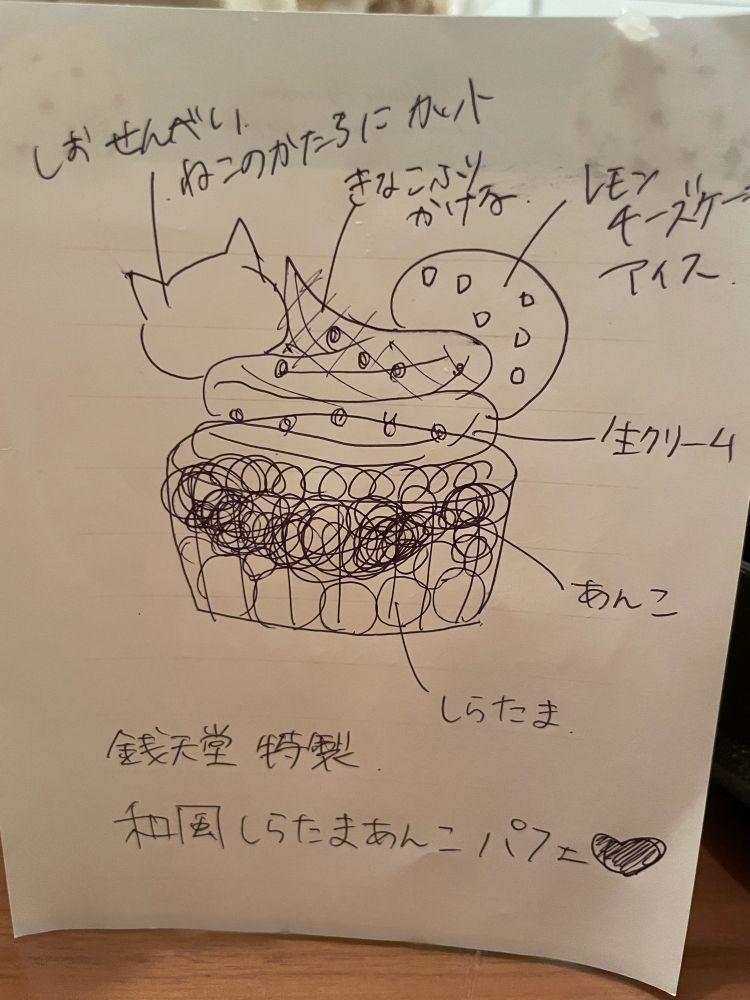 しお せんべい
ねこのかたちに カット
きなこふり
かける
レモン
チーズケー
アイス
生クリーム
あんこ
しらたま
銭天堂 特製
和風しらたまあんこ パフェ